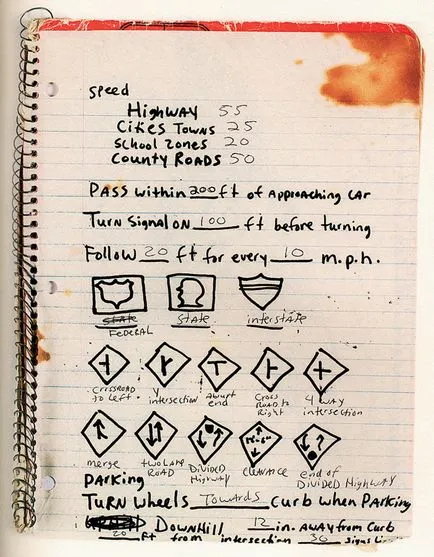 speed
Highway 55
Cities Towns 25
School Zones 20
County Roads 50
Pass within 200 ft of Approaching car
Turn Signal on 100 ft before turning
Follow 20 ft for every 10 m.p.h.
State State interstate
Federal
Crossroad to Left
Y intersection
Abrupt end
Cross Road to Right
4 way intersection
12'-6"
merge
two Lane Road
Divided Highway
Clearance
end of Divided Highway
Parking
Turn wheels Towards curb when Parking
Downhill 12 in. Away from Curb
20 Ft from intersection 30 signs